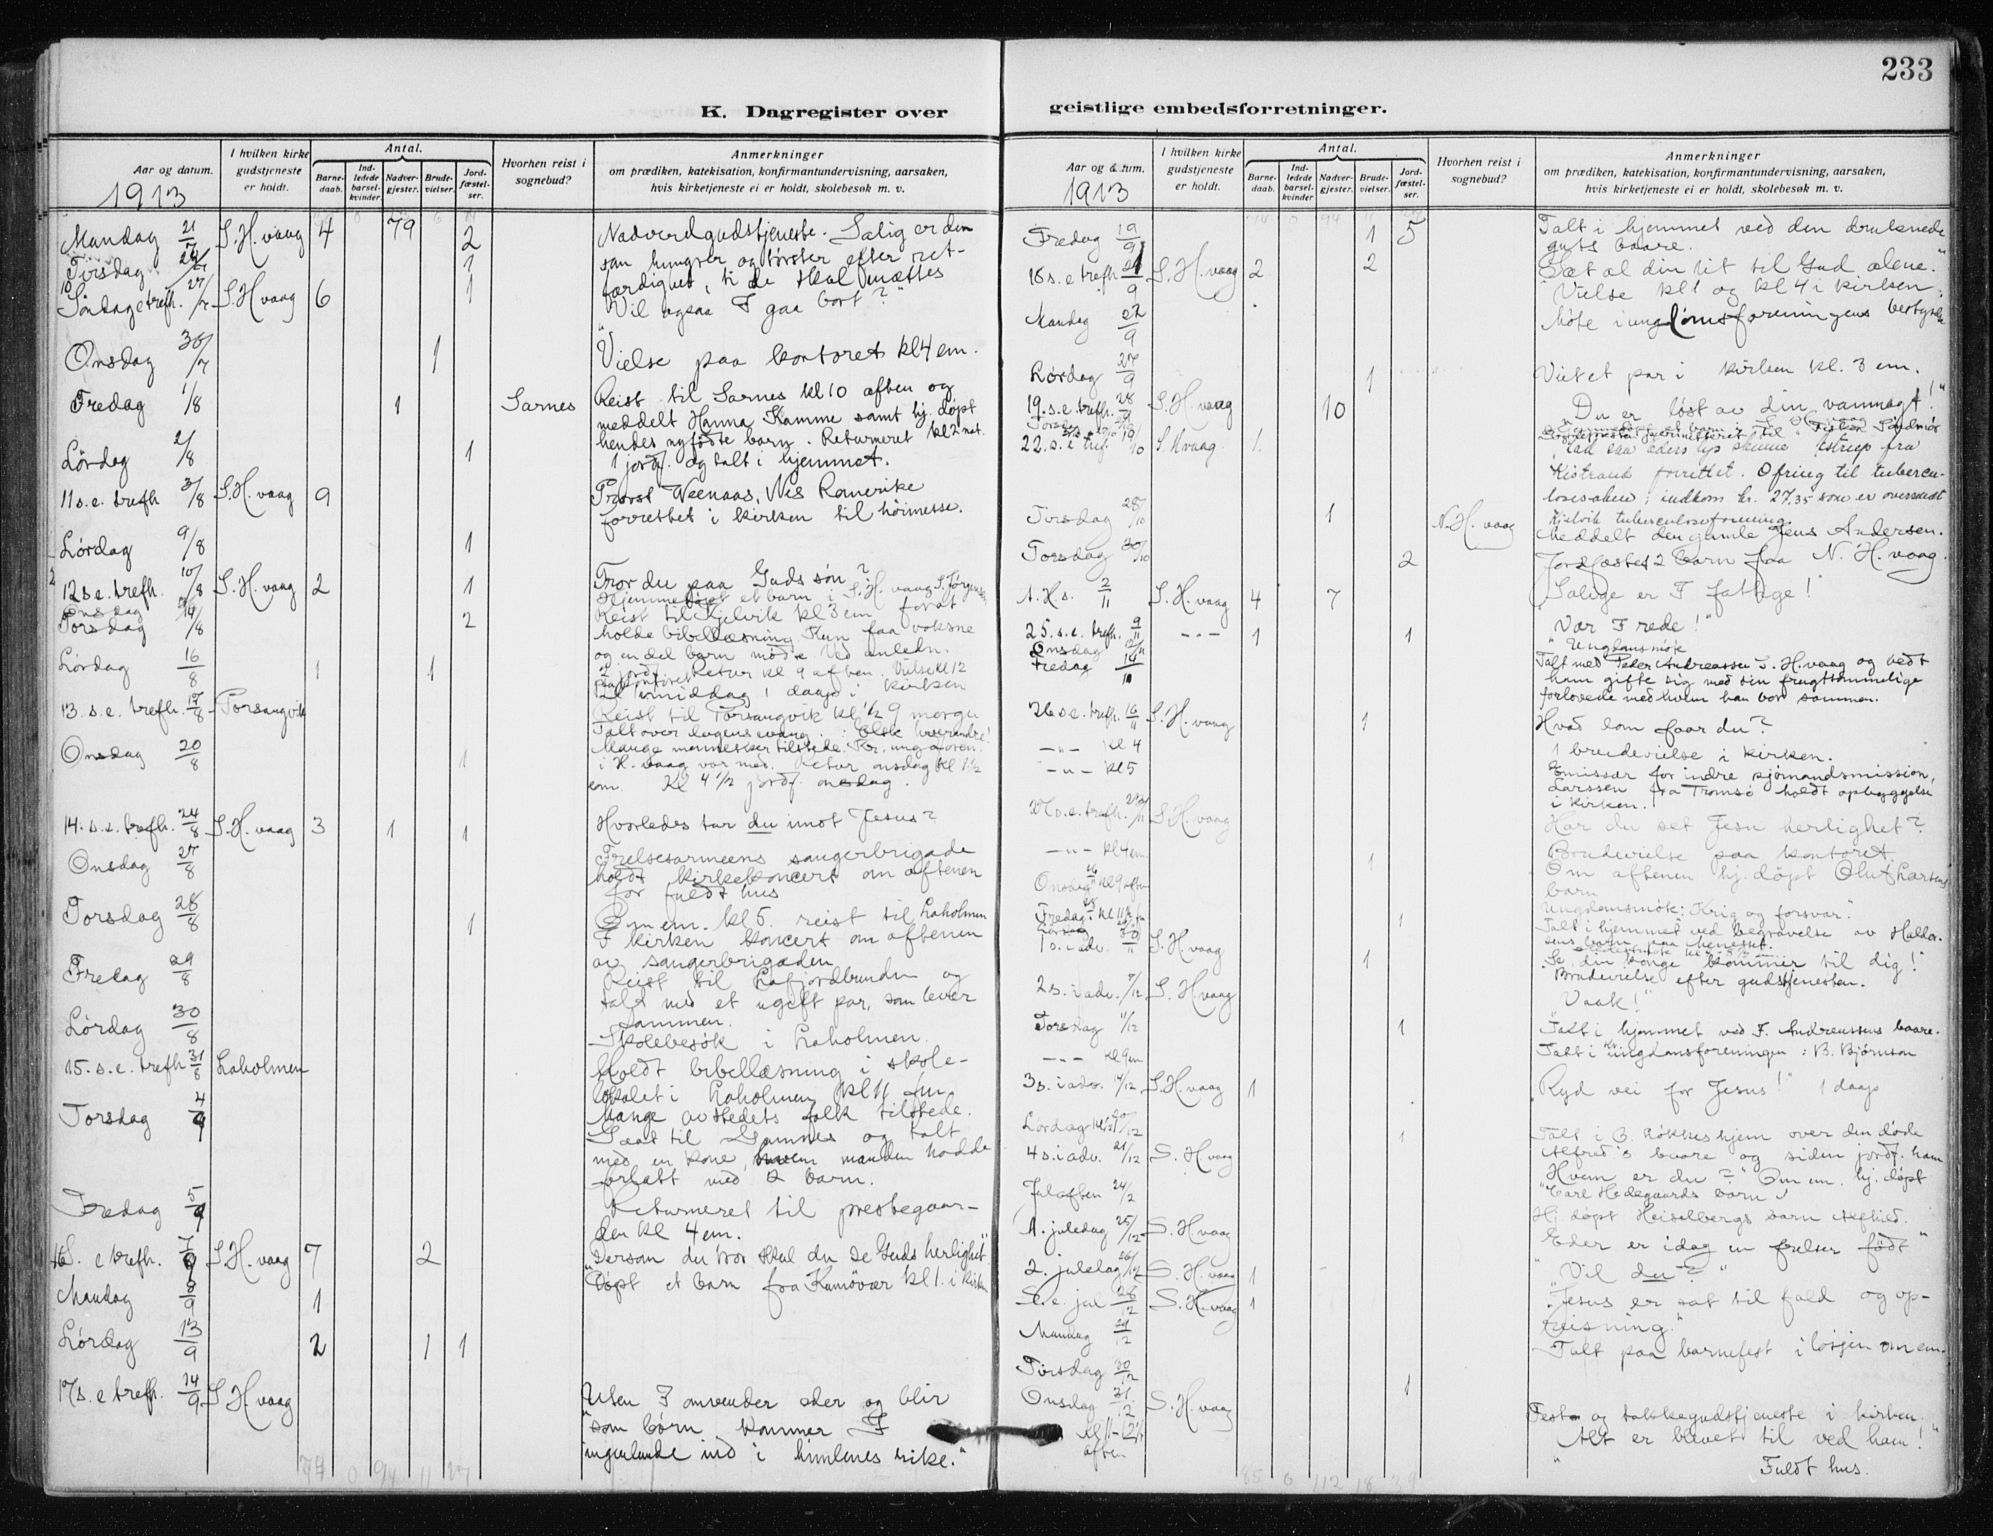 233
K. Dagregister over
geistlige embedsforretninger.
Aar og datum.
I hvilken kirke gudstjeneste er holdt.
Antal.
Barne-daab.
Ind-ledede barsel-kvinder
Nadver-gjester.
Brude-vielser.
Jord-fæstel-ser.
Hvorhen reist i sognebud?
Anmerkninger
om prædiken, katekisation, konfirmantundervisning, aarsaken,
hvis kirketjeneste ei er holdt, skolebesøk m. v.
1913
Mandag 21/7 S. H. vaag 4 79 2 Nadverdgudstjeneste. Salig er den
Tirsdag 1 som hungrer og tørster efter ret-
10 Søndag e trefh. 27/7 S. H vaag 6 1 færdighet, ti de skal mættes
"Vil ogsaa I gaa bort?"
Onsdag 30/7 1 Vielse paa kontoret kl 4 em.
Fredag 1/8 1 Sarnes Reist til Sarnes kl 10 aften og
meddelt Hanna Kamme samt hj. døpt
hendes nyfødte barn. Returneret kl 2 nat.
Lördag 2/8 1 1 jordf. og talt i hjemmet.
11 s. e. trefh 3/8 S. H. vaag 9 Provst Weenaas, Nes Romerike
forrettet i kirken til høimesse.
Lórdag 9/8 1
12 s. e. trefh. 10/8 S. H. vaag 2 1 Tror du paa Guds søn?
Hjemmedøpt et barn i S. H. vaag S. Jørgensen
Torsdag 14/8 2 Reist til Kjelvik kl 3 em forat
holde bibellæsning Kun faa voksne
og en del barn mødte. Ved anledn.
Lórdag 16/8 1 1 2 jordf. Retur kl 9 aften. Vielse kl 12
paa kontoret
middag 1 daap i kirken
13. s. e. trefh. 17/8 Porsangvik Reist til Porsangvik kl ½ 9 morgn
Talt over dagens evang.: Elsk hverandre!
Mange mennesker tilstede.
Onsdag 20/8 1 i H. vaag var med. Retur onsdag kl 1½
em. Kl 4 ½ jordf. onsdag.
14. s. e. trefh. 24/8 S. H. vaag 3 1 1 Hvorledes tar du imot Jesus?
Onsdag 27/8 Frelsesarmeens sangerbrigade
holdt kirkekoncert om aftenen
for fuldt hus
Torsdag 28/8 1 Om em. kl 5. reist til Laholmen
I kirken koncert om aftenen
av sangerbrigaden
Fredag 29/8 Reist til Lafjordbunden og
talt med et ugift par, som lever
sammen.
Lördag 30/8 Skolebesøk i Laholmen.
15. s. e. trefh 31/8 Laholmen Holdt bibellæsning i skole-
lokalet i Laholmen kl 11 fm
Mange av stedets folk tilstede.
Torsdag 4/9 til og talt
med en kone, hvem manden hadde
forlatt med 2 barn.
Fredag 5/9 Returneret til prestegaar-
den kl 4 em.
16 S. e trefh. 7/9 S H. vaag 7 2 "Dersom du tror skal du se Guds herlighet"
Mandag 8/9 1 Døpt et barn fra Kamøvær kl 1. i kirken
Lórdag 13/9 2 1 1
17 s. e trefh. 14/9 S H. vaag Uten I omvender eder og blir
"som børn kommer I
ingenlunde ind i himlenes rike."
77 0 94 11 27
Aar og datum.
I hvilken kirke gudstjeneste er holdt.
Antal.
Barne-daab.
Ind-ledede barsel-kvinder
Nadver-gjester.
Brude-vielser.
Jord-fæstel-ser.
Hvorhen reist i sognebud?
Anmerkninger
om prædiken, katekisation, konfirmantundervisning, aarsaken,
hvis kirketjeneste ei er holdt, skolebesøk m. v.
1913
Fredag 19/9 1 5 Talt i hjemmet ved den druknede
guts baare.
18 s. e trefh 21/9 S. H. vaag 2 2 "Sæt al din lit til Gud alene."
Vielse kl 1 og kl 4 i kirken
Mandag 22/9 Møte i ungdomsforeningens bestyrelse
Lørdag 27/9 1 Viet et par i kirken kl. 3 em.
19. s. e. trefh. 28/9 S. H. vaag 10 "Du er løst av din vanmagt!"
22. s. e. tref. 19/10 S. H vaag 1. lad saa eders lys skinne Astrup fra
Kistrand forrettet. Ofring til tubercu-
losesaken; indkom kr. 27.35 som er oversendt
Kjelvik tuberculoseforening
Tirsdag 28/10 1 N. H. vaag Meddelt den gamle Jens Andersen.
Torsdag 30/10 2 Jordfæstet 2 barn fra N. H. vaag.
A. H. s. 2/11 S. H. vaag 4 7 Salige er I fattige!
25. s. e. trefh. 9/11 - " - 1 1 "Vær I rede!"
Onsdag 12/11 Ungdomsmøte
Fredag 14/11 Talt med Peder Andreassen S. H. vaag og bedt
ham gifte sig med sin frugtsommelige
forlovede med hvem han bor sammen.
26 s e. trefh. 16/11 S. H. vaag 1 Hvad løn faar du?
- " - kl 4 1 brudevielse i kirken.
- " - kl 5 Emissær for indre sjømandsmission,
Larssen fra Tromsö holdt opbyggelse
i kirken.
27 s. e. trefh. 23/11 S H. vaag Har du set Jesu herlighet?
- " - kl 4 em 1 Brudevielse paa kontoret.
Onsdag 26 kl 9 aften Om aftenen hj. døpt Oluf Larsens
barn
Ungdomsmøte: "Krig og forsvar."
Fredag 28 kl 11 1 Talt i hjemmet ved begravelse av Haldor-
sens barn paa Meneset.
1 s. i adv. 30/11 S. H. vaag 1 "Se din konge kommer til dig!"
Brudevielse efter gudstjenesten.
2 s. i adv. 7/12 S. H. vaag "Vaak!"
Torsdag 11/12 1 Talt i hjemmet ved F. Andreassens baare.
- " - kl 9 em Talt i kr. ungdomsforeningen: B. Bjørnson
3 s. i adv. 14/12 S. H. vaag 1 "Ryd vei for Jesus!" 1 daap
Lordag 20/12 1 Talt i B. Løkkes hjem over den døde
Alfred's baare og siden jordf. ham
4 s. i adv. 21/12 S. H vaag Hvem er du?" Om em. hj. døpt
Carl Hedegaards barn
Julaften 24/12 Hj døpt Heiselbergs barn Alfhild.
1. juledag 25/12 S. H. vaag "Eder er idag en frelser født"
2. juledag 26/12 S. H. vaag 1 "Vil du?"
S. e. jul 28/12 S. H. vaag 1 "Jesus er sat til fald og op-
reisning."
Mandag 29/12 Talt paa barnefest i losjen om em.
Tirsdag 30/12 1
Onsdag 31/12 S. H. vaag Fest- og takkegudstjeneste i kirken
kl 11-12 aften "Alt er blevet til ved ham!"
Fuldt hus.
85 0 112 18 39